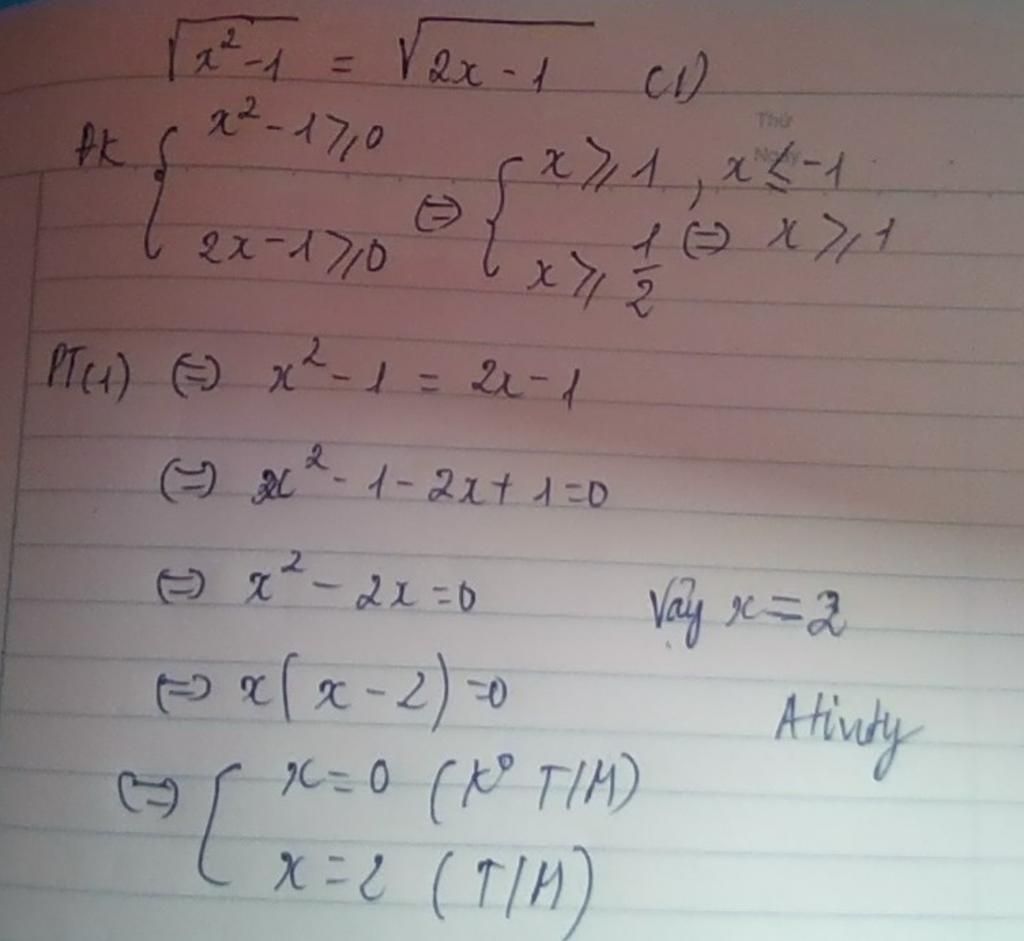 √(x² - 1) = √(2x - 1) (1)
ĐK { x² - 1 ⩾ 0 ; 2x - 1 ⩾ 0 ⇔ { x ⩾ 1, x ≤ -1 ; x ⩾ 1/2 ⇔ x ⩾ 1
Thứ
Ngày
PT(1) ⇔ x² - 1 = 2x - 1
⇔ x² - 1 - 2x + 1 = 0
⇔ x² - 2x = 0
Vậy x = 2
⇔ x(x - 2) = 0
Ativity
⇔ [ x = 0 (K° T/M)
x = 2 (T/M)